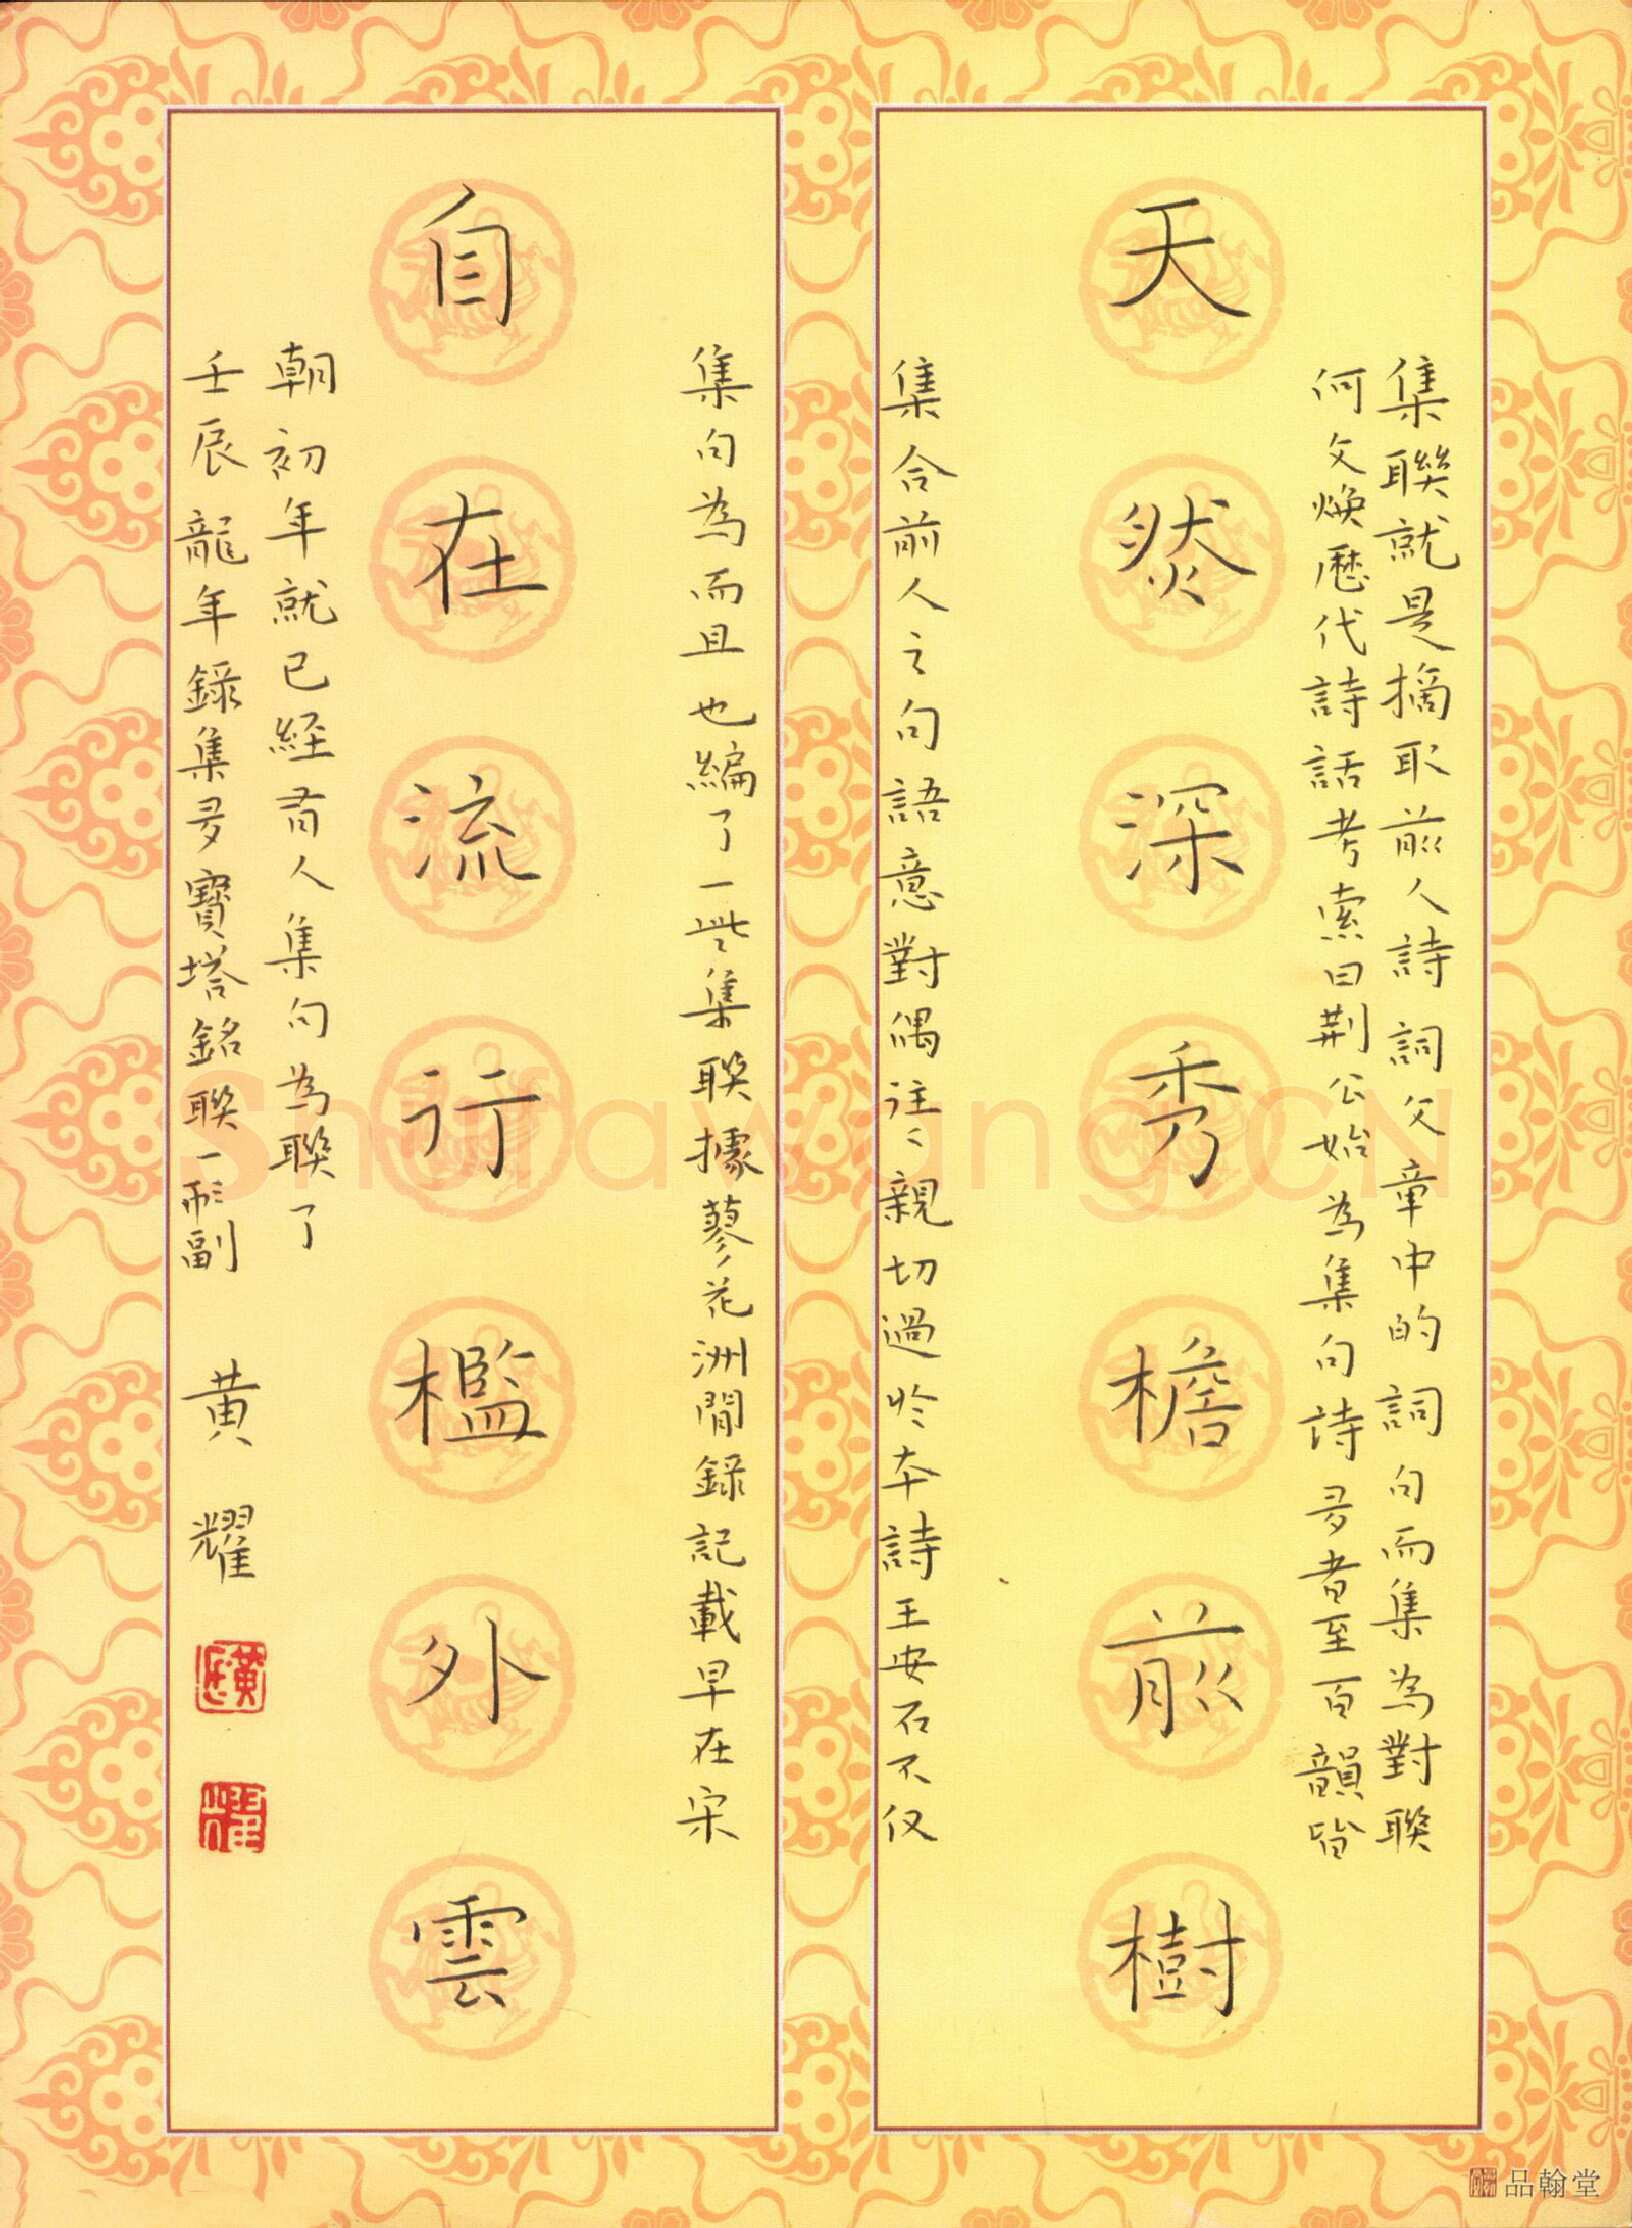 天然深秀檐前樹
集聯就是摘取前人詩詞文章中的詞句而集為對聯
何文煥歷代詩話考索曰荆公始為集句詩多者至百韻皆
集合前人之句語意對偶往〻親切過於本詩王安石不仅
自在流行檻外雲
集句為而且也編了一些集联據蓼花洲閒録記載早在宋
朝初年就已経有人集句為聯了
壬辰龍年録集多寶塔銘联一副
黄耀
Shufawang.CN
品翰堂